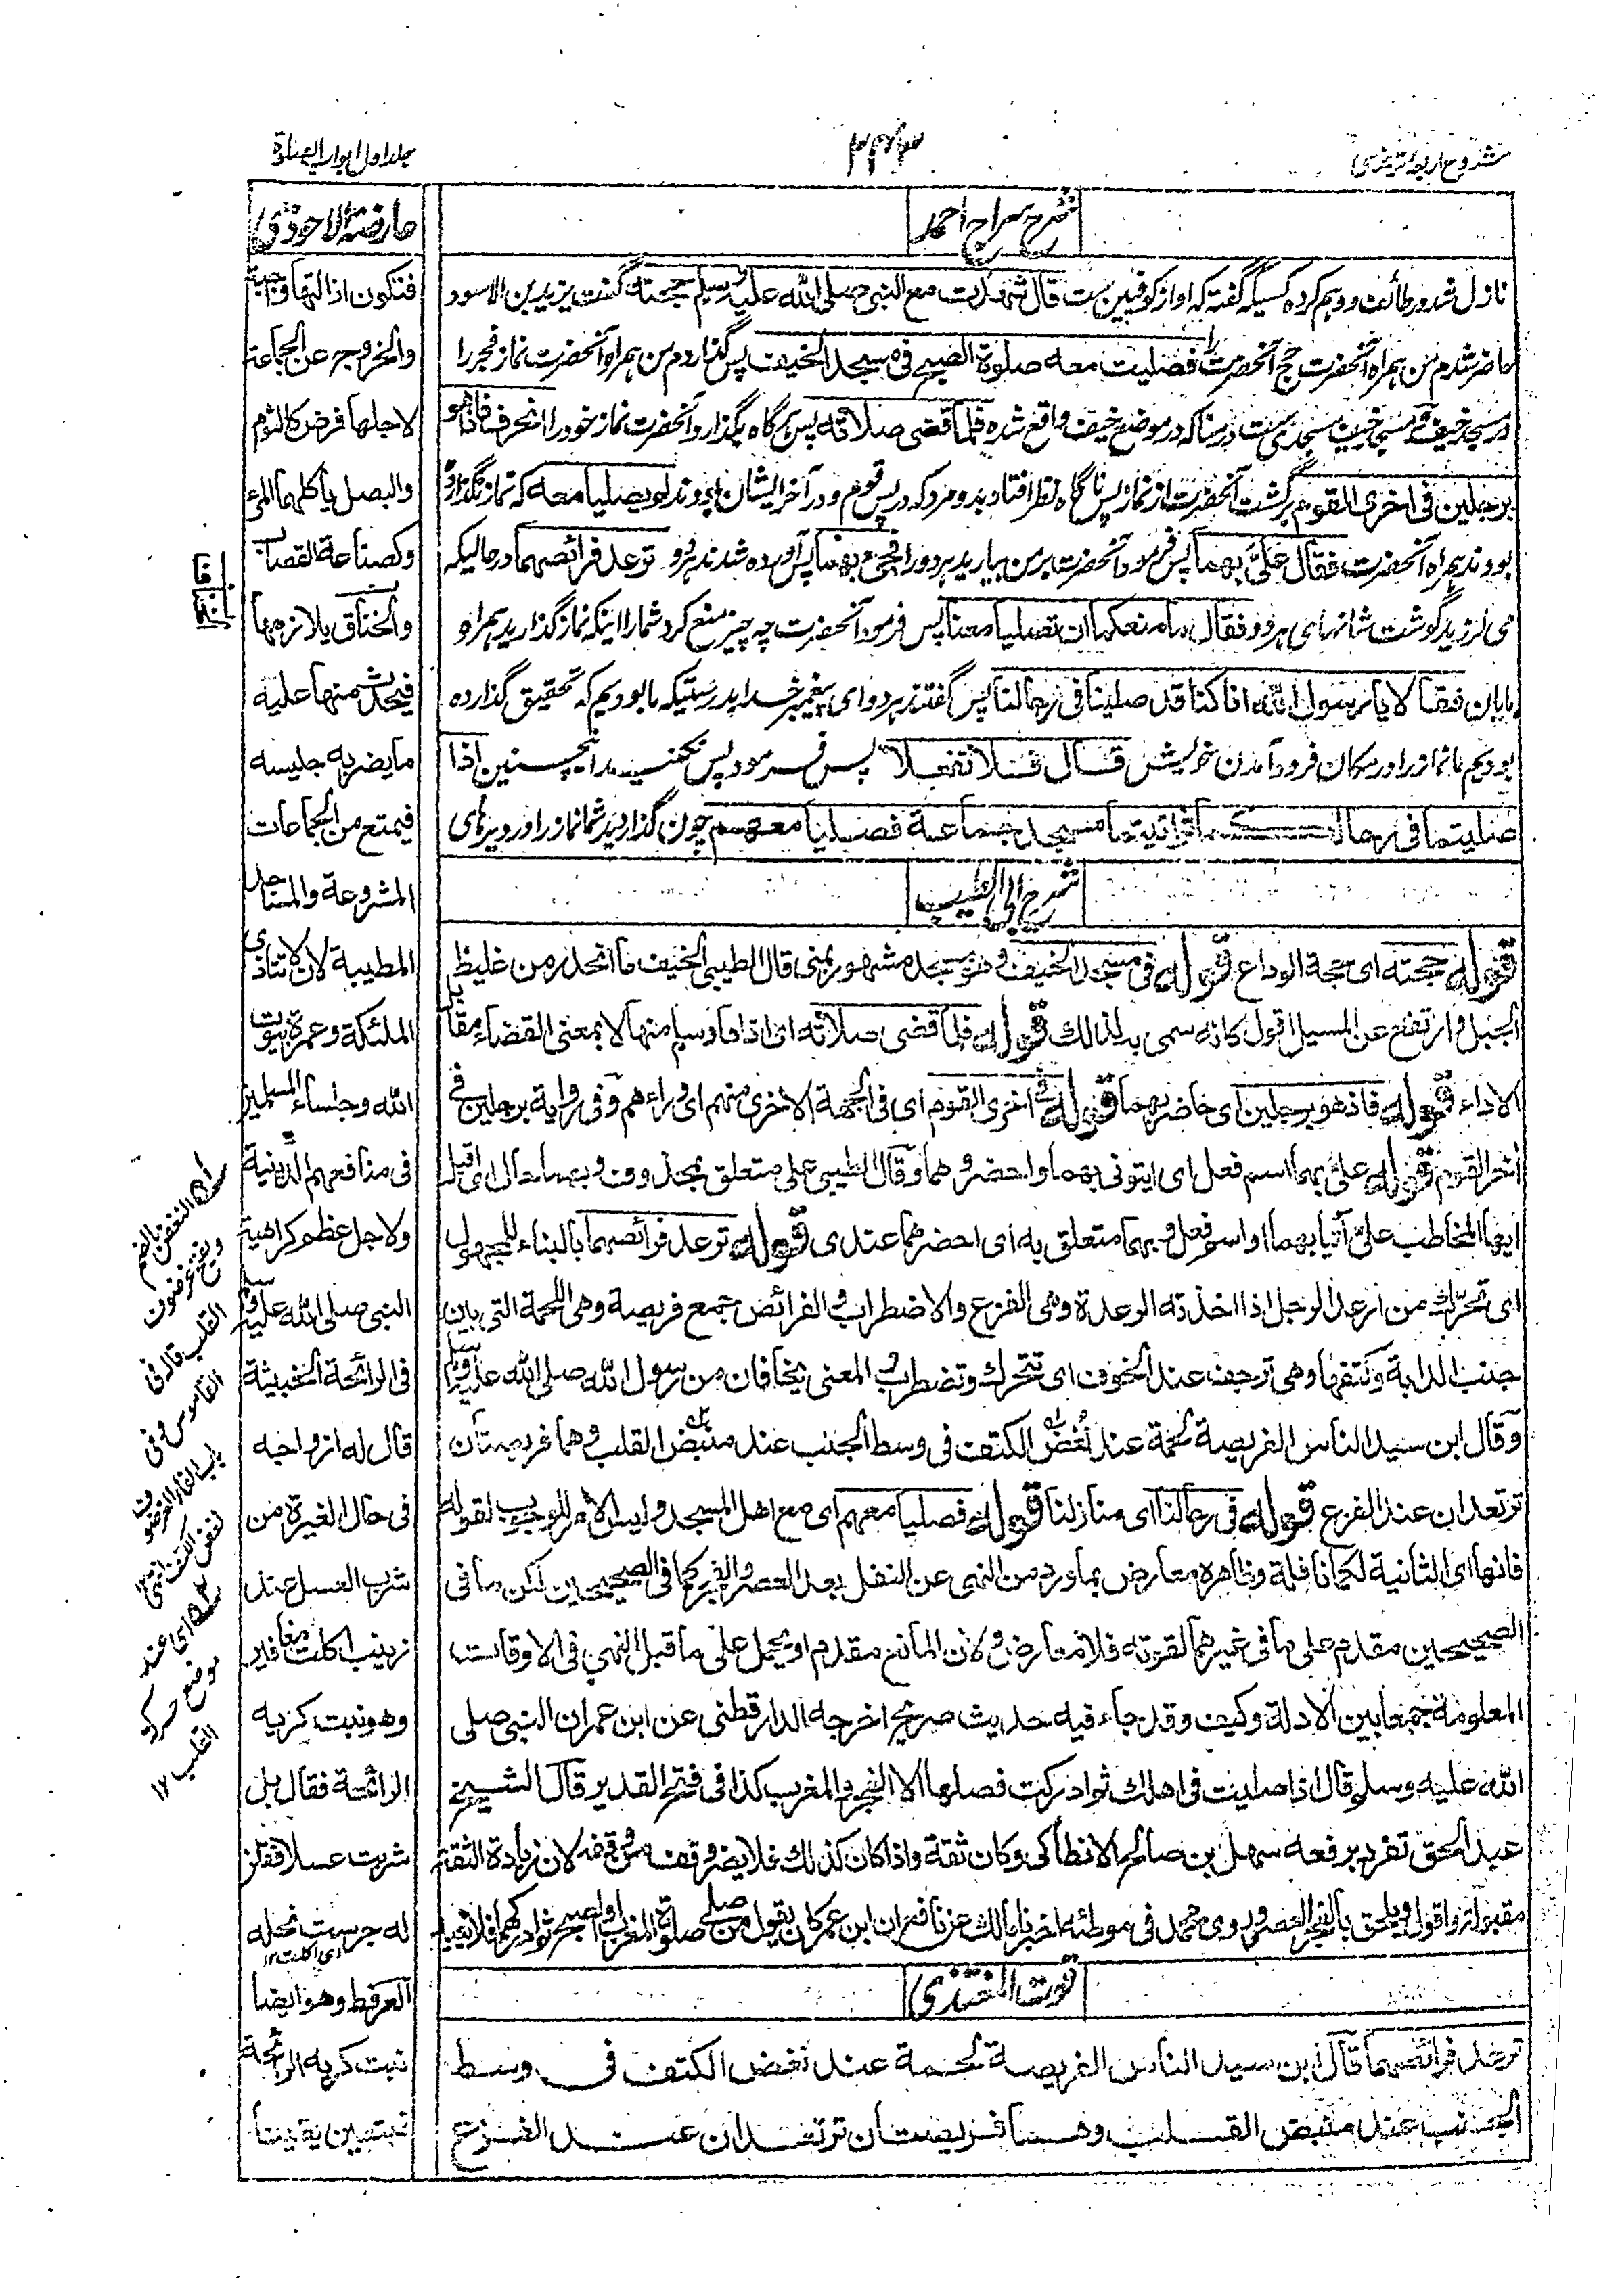 شروح اربعه ترمذی
۲۴۳
جلد اول ابواب الصلوة
شرح سراج احمد
نازل شد در طائف و وهم کرده کسیکه گفته که او از کوفیین ست قال شهدت مع النبی صلی الله علیه وسلم حجته گفت یزید بن الاسود
حاضر شدم من همراه آنحضرت حج آنحضرت را فصلیت معه صلوة الصبح فی مسجد الخیف پس گذاردم من همراه آنحضرت نماز فجر را
در مسجد خیف و مسجد خیف مسجدی ست در منا که در موضع خیف واقع شده فلما قضی صلاته پس هرگاه بگذارد آنحضرت نماز خود را انحرف فاذا هو
برجلین فی اخری القوم برگشت آنحضرت از نماز پس ناگاه نظر افتاد بدو مرد که در پس قوم و در آخر ایشان بودند لم یصلیا معه که نماز نگذارده
بودند همراه آنحضرت فقال علیّ بهما پس فرمود آنحضرت بر من بیارید هر دو را فجئ بهما پس آورده شدند هر دو ترعد فرائصهما در حالیکه
می لرزید گوشت شانهای هر دو فقال ما منعکما ان تصلیا معنا پس فرمود آنحضرت چه چیز منع کرد شما را اینکه نماز گذارید همراه
مایان فقالا یا رسول الله انا کنا قد صلینا فی رحالنا پس گفتند هر دو ای پیغمبر خدا بدرستیکه ما بودیم که تحقیق گذارده
بودیم ما نماز را در مکان فرود آمدن خویش قال فلا تفعلا پس فرمود پس نکنید همچنین اذا
صلیتما فی رحالکما ثم اتیتما مسجد جماعة فصلیا معهم چون گذاردید شما نماز را در دیرهای
شرح ابی الطیب
قوله حجته ای حجة الوداع قوله فی مسجد الخیف وهو مسجد مشهور بمنی قال الطیبی الخیف ما انحدر من غلیظ
الجبل وارتفع عن المسیل اقول کانه سمی به لذلك قوله فلما قضی صلاته ای اداها وسلم منها لا بمعنی القضاء مقابل
الاداء قوله فاذا هو برجلین ای حاضر بهما قوله فی اخری القوم ای فی الجهة الاخری منهم ای وراءهم وفی روایة برجلین فی
آخر القوم قوله علیّ بهما اسم فعل ای ایتونی بهما واحضروهما وقال الطیبی علی متعلق بمحذوف وبهما حال ای اقبل
ایها المخاطب علیّ آتیا بهما او اسم فعل وبهما متعلق به ای احضرهما عندی قوله ترعد فرائصهما بالبناء للمجهول
ای تحرّك من ارعد الرجل اذا اخذته الرعدة وهی الفزع والاضطراب والفرائص جمع فریصة وهی اللحمة التی بین
جنب الدابة وکتفها وهی ترجف عند الخوف ای تتحرك وتضطرب والمعنی یخافان من رسول الله صلی الله علیه وسلم
وقال ابن سید الناس الفریصة لحمة عند نُغْض الکتف فی وسط الجنب عند منبض القلب وهما فریصتان
ترتعدان عند الفزع قوله فی رحالنا ای منازلنا قوله فصلیا معهم ای مع اهل المسجد ولیس الامر للوجوب لقوله
فانها ای الثانیة لکما نافلة وظاهره معارض بما ورد من النهی عن النفل بعد العصر والفجر کما فی الصحیحین لکن ما فی
الصحیحین مقدم علی ما فی غیرهما لقوته فلا معارض ولان المانع مقدم او یحمل علی ما قبل النهی فی الاوقات
المعلومة جمعا بین الادلة وکیف وقد جاء فیه حدیث صریح اخرجه الدارقطنی عن ابن عمر ان النبی صلی
الله علیه وسلم قال اذا صلیت فی اهلك ثم ادرکت فصلها الا الفجر والمغرب کذا فی فتح القدیر قال الشیخ
عبد الحق تفرد برفعه سهل بن صالح الانطاکی وکان ثقة واذا کان کذلك فلا یضر وقف من وقفه لان زیادة الثقة
مقبولة اقول ویلحق بالفجر العصر وروی محمد فی موطئه اخبرنا مالك عن نافع ان ابن عمر کان یقول من صلی صلوة المغرب او الصبح ثم ادرکهما فلا یعید
قوت المغتذی
ترعد فرائصهما قال ابن سید الناس الفریصة لحمة عند نغض الکتف فی وسط
الجنب عند منبض القلب وهما فریصتان ترتعدان عند الفزع
عارضة الاحوذی
فتکون اذا لتها واجبة
والخروج عن الجماعة
لاجلها فرض کالثوم
والبصل یاکلهما المرء
وکصناعة القصاب
والخناق یلازمها
فیحدث منها علیه
ما یضر به جلیسه
فیمتع من الجماعات
المشروعة والمساجد
المطیبة لان لا تتاذی
الملئکة وعمرة بیوت
الله وجلساء المسلمین
فی منافعهم الدینیة
ولاجل عظم کراهیة
النبی صلی الله علیه وسلم
فی الرائحة الخبیثة
قال له ازواجه
فی حال الغیرة من
شرب العسل عند
زینب اکلت مغافیر
وهو نبت کریه
الرائحة فقال بل
شربت عسلا فقلن
له جرست نحله
ای اکلت ۱۲
العرفط وهو ایضا
نبت کریه الرائحة
نبتین یقینا
له النغض بالضم
ویفتح غرضوف
الکتف قاله فی
القاموس وفی
باب الفاء الغرضوف
نغض الکتف انتهی
له ای عند
موضع حرکة
القلب ۱۲